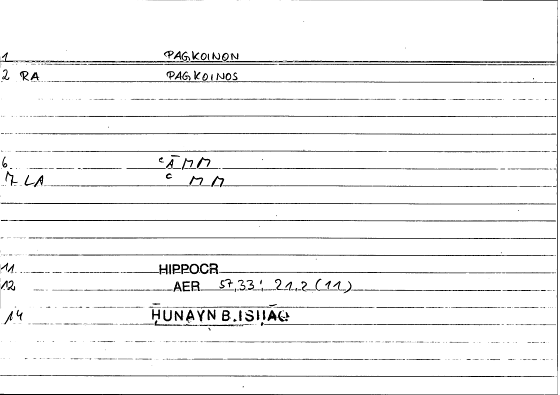 1 PAGKOINON
2 RA PAGKOINOS
6 ʿĀMM
7 LA ʿMM
11 HIPPOCR
12 AER 57,33; 21,2 (11)
14 ḤUNAYN B.ISḤĀQ